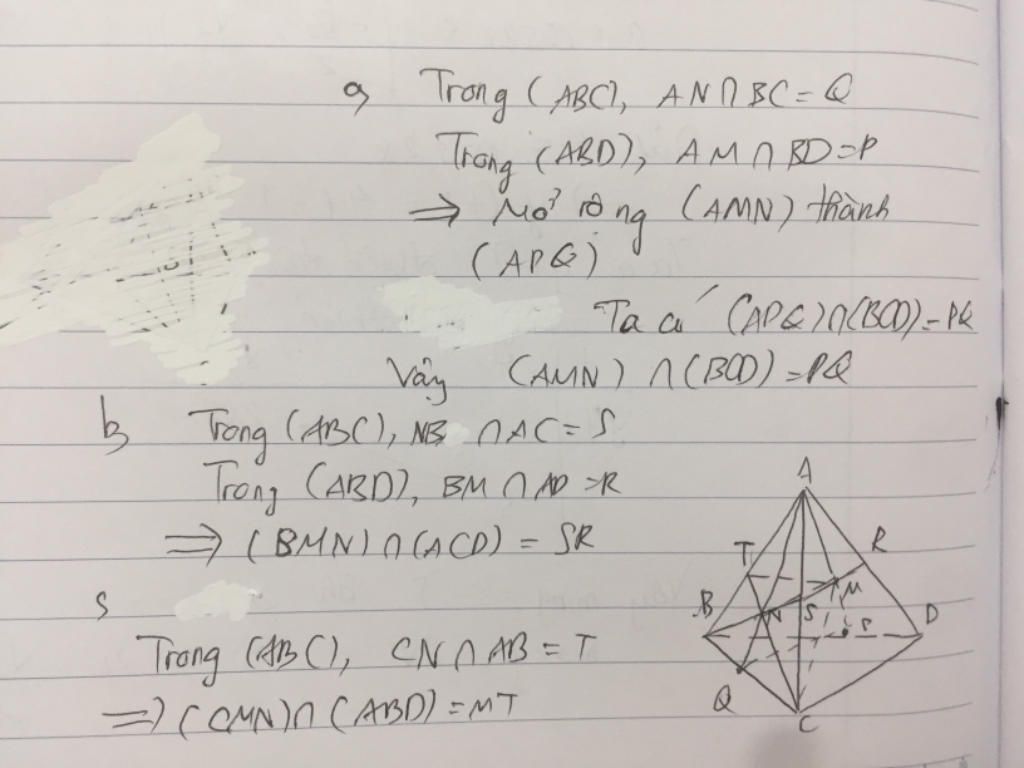 a, Trong (ABC), AN ∩ BC = Q
Trong (ABD), AM ∩ BD = P
⇒ Mở rộng (AMN) thành
(APQ)
Ta có (APQ) ∩ (BCD) = PQ
Vậy (AMN) ∩ (BCD) = PQ
b, Trong (ABC), NB ∩ AC = S
Trong (ABD), BM ∩ AD = R
⇒ (BMN) ∩ (ACD) = SR
c,
Trong (ABC), CN ∩ AB = T
⇒ (CMN) ∩ (ABD) = MT
A
T R
M
B N S P D
Q
C